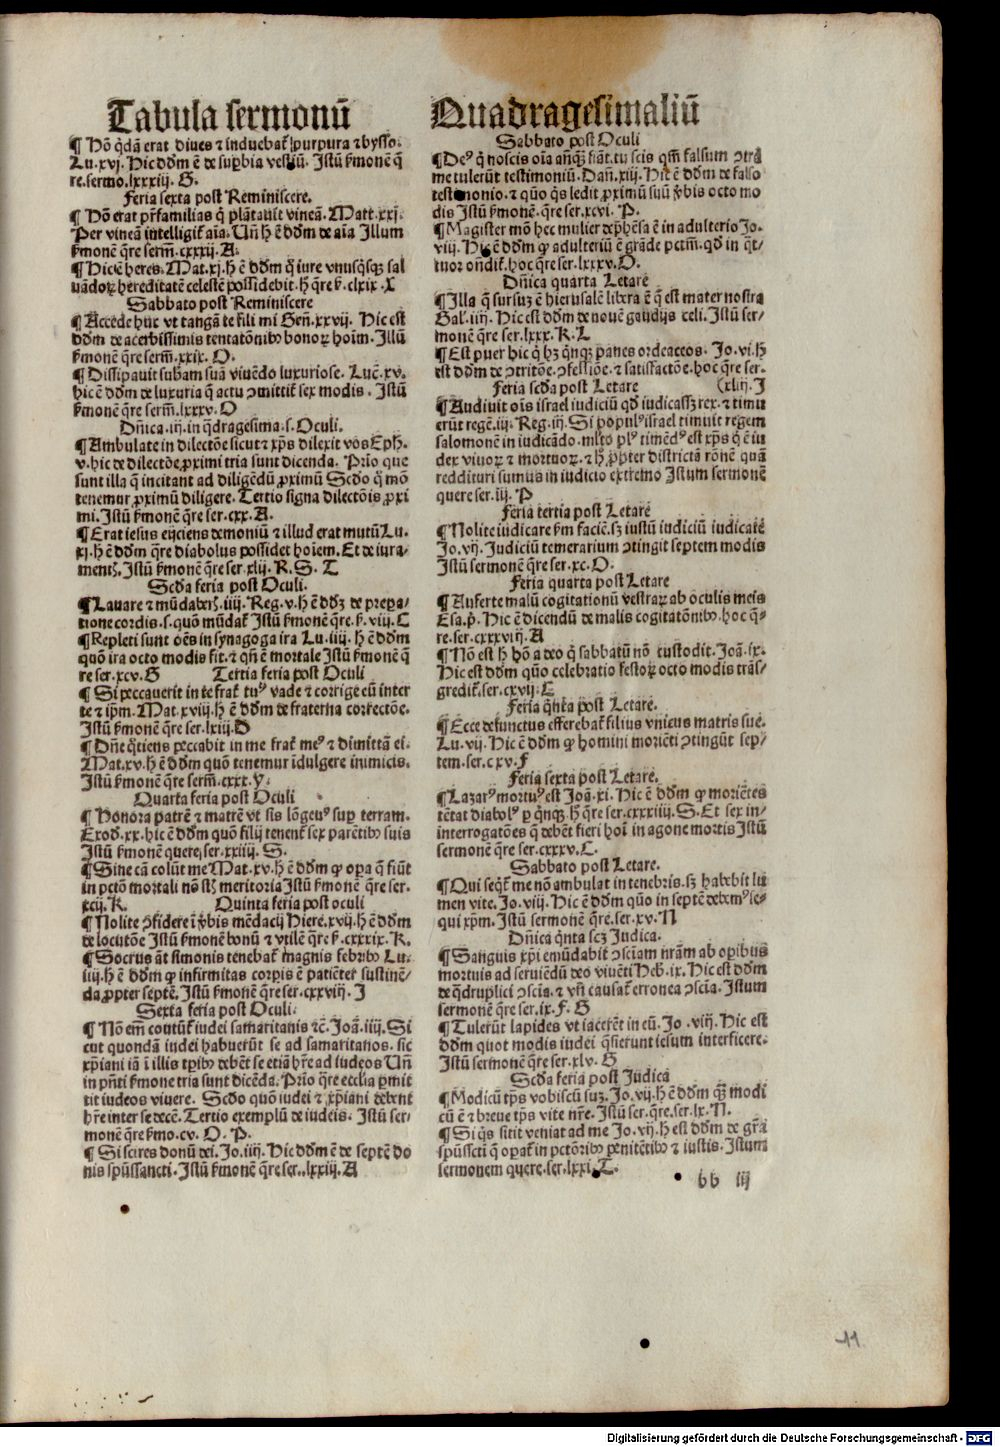 Tabula sermonū
¶ Hō q̄dā erat diues ⁊ induebat᷑ purpura ⁊ bysso.
Lu.xvj. Hic dd̄m ē de suꝑbia vestiū. Istū ẜmonē q̄
re.sermo.lxxxiij. G.
Feria sexta post Reminiscere.
¶ Hō erat pr̄familias q̄ plātauit vineā. Matt.xxj.
Per vineā intelligit᷑ aīa. Un̄ h̄ ē dd̄m de aīa Illum
ẜmonē q̄re serm̄.cxxxij. A.
¶ Hic ē heres. Mat.xj. h̄ ē dd̄m q̄ iure vnusq̄sqꝫ sal
uādoꝝ hereditatē celestē possidebit. h̄ q̄re ẜ. clxix. X
Sabbato post Reminiscere
¶ Accede huc vt tangā te fili mi Gen̄.xxvij. Hic est
dd̄m de acerbissimis tentatōnibꝰ bonoꝝ hoīm. Illū
ẜmonē q̄re serm̄.xxix. O.
¶ Dissipauit subam̄ suā viuēdo luxuriose. Luc̄.xv.
hic ē dd̄m de luxuria q̄ actu ↄmittit᷑ sex modis. Istū
ẜmonē q̄re serm̄.lxxxv. O
Dn̄ica .iij. in q̄dragesima .s. Oculi.
¶ Ambulate in dilectōe sicut ⁊ xp̄s dilexit vos Eph̄.
v. hic de dilectōe ꝓximi tria sunt dicenda. Prīo que
sunt illa q̄ incitant ad diligēdū ꝓximū Scd̄o q̄ mō
tenemur ꝓximū diligere. Tertio signa dilectōis ꝓxi
mi. Istū ẜmonē q̄re ser.cxx. A.
¶ Erat iesus eijciens demoniū ⁊ illud erat mutū Lu.
xj. h̄ ē dd̄m q̄re diabolus possidet hoīem. Et de iura-
mentꝭ. Istū ẜmonē q̄re ser.xlij. R. S. T
Scd̄a feria post Oculi.
¶ Lauare ⁊ mūdaberꝭ .iiij. Reg.v. h̄ ē dd̄ꝫ de prepa/
tione cordis .s. quō mūdat᷑ Istū ẜmonē q̄re. ẜ. viij. C
¶ Repleti sunt oēs in synagoga ira Lu.iiij. h̄ ē dd̄m
quō ira octo modis fit. ⁊ qn̄ ē mortale Istū ẜmonē q̄
re ser.xcv. G Tertia feria post Oculi
¶ Si peccauerit in te frat᷑ tuꝰ vade ⁊ corrige eū inter
te ⁊ ip̄m. Mat.xviij. h̄ ē dd̄m de fraterna correctōe.
Istū ẜmonē q̄re ser.lxiij. D
¶ Dn̄e q̄tiens peccabit in me frat᷑ meꝰ ⁊ dimittā ei.
Mat.xv. h̄ ē dd̄m quō tenemur īdulgere inimicis.
Istū ẜmonē q̄re serm̄.cxxx. V.
Quarta feria post Oculi
¶ Honora patrē ⁊ matrē vt sis lōgeuꝰ suꝑ terram.
Exod̄.xx. hic ē dd̄m quō filij tenent᷑ sex parētibꝰ suis
Istū ẜmonē quere ser.xxiiij. S.
¶ Sine cā colūt me Mat.xv. h̄ ē dd̄m ꝙ oꝑa q̄ fiūt
in pctō mortali nō st̄ meritoria Istū ẜmonē q̄re ser.
xcij. K. Quinta feria post oculi
¶ Nolite ↄfidere ī v̄bis mēdacij Hiere.xvij. h̄ ē dd̄m
de locutōe Istū ẜmonē bonū ⁊ vtilē q̄re ẜ. cxxxix. K.
¶ Socrus āt simonis tenebat᷑ magnis febribꝰ Lu.
iiij. h̄ ē dd̄m ꝙ infirmitas corꝑis ē patiēter sustinē/
da ꝓpter septē. Istū ẜmonē q̄re ser.cxxviij. I
Sexta feria post Oculi.
¶ Nō em̄ contūt᷑ iudei samaritanis ⁊c̄. Joā.iiij. Si
cut quondā iudei habuerūt se ad samaritanos. sic
xp̄iani iā ī illis tꝑibꝰ debēt se etiā hr̄e ad iudeos Un̄
in pn̄ti ẜmone tria sunt dicēda. Prīo q̄re ecclīa ꝑmit
tit iudeos viuere. Scd̄o quō iudei ⁊ xp̄iani debent
hr̄e inter se decē. Tertio exemplū de iudeis. Istū ser-
monē q̄re ẜmo.cv. O. P.
¶ Si scires donū dei. Jo.iiij. Hic dd̄m ē de septē do
nis sp̄ussancti. Istū ẜmonē q̄re ser..lxxiij. A
Quadragesimaliū
Sabbato post Oculi
¶ Deꝰ q̄ noscis oīa an̄qꝫ fiāt. tu scis qm̄ falsum ↄtra
me tulerūt testimoniū. Dan̄.xiij. Hic ē dd̄m de falso
testimonio. ⁊ quō q̄s ledit ꝓximū suū v̄bis octo mo
dis Istū ẜmonē. q̄re ser.xcvi. P.
¶ Magister mō hec mulier dep̄hēsa ē in adulterio Jo.
viij. Hic ē dd̄m ꝙ adulteriū ē grāde pctm̄. qd̄ in q̄t/
tuor on̄dit᷑. hoc q̄re ser.lxxxv. O.
Dn̄ica quarta Letare
¶ Illa q̄ sursuꝫ ē hierusalē libera ē q̄ est mater nostra
Gal̄.iiij. Hic est dd̄m de nouē gaudijs celi. Istū ser-
monē q̄re ser.lxxx. K. L
¶ Est puer hic q̄ hꝫ q̄nqꝫ panes ordeaceos. Jo.vi. h̄
est dd̄m de ↄtritōe. ↄfessiōe. ⁊ satisfactōe. hoc q̄re ser.
Feria scd̄a post Letare (xliij. I
¶ Audiuit oīs israel iudiciū qd̄ iudicassꝫ rex. ⁊ timu
erūt regē .iij. Reg.iij. Si popul̄ꝰ israel timuit regem
salomonē in iudicādo. ml̄to plꝰ timēdꝰ est xp̄s q̄ ē iu
dex viuoꝝ ⁊ mortuoꝝ. ⁊ h̄ ꝓpter districtā rōnē quā
reddituri sumus in iudicio extremo Istum sermonē
quere ser.iij. P
Feria tertia post Letare
¶ Nolite iudicare ẜm faciē. sꝫ iustū iudiciū iudicate
Jo.vij. Judiciū temerarium ↄtingit septem modis
Istū sermonē q̄re ser.xc. O.
Feria quarta post Letare
¶ Auferte malū cogitationū vestraꝝ ab oculis meis
Esa.p̄. Hic ē dicendū de malis cogitatōnibꝰ. hoc q̄-
re.ser.cxxxviij. A
¶ Nō est h̄ hō a deo q̄ sabbatū nō custodit. Joā.ix.
Hic est dd̄m quō celebratio festoꝝ octo modis trās/
gredit᷑. ser.cxvij. C
Feria q̄nta post Letare.
¶ Ecce defunctus efferebat᷑ filius vnicus matris sue.
Lu.vij. Hic ē dd̄m ꝙ homini moriēti ↄtingūt sep/
tem.ser.cxv. F
Feria sexta post Letare.
¶ Lazarꝰ mortuꝰ est Joā.xi. Hic ē dd̄m ꝙ moriētes
tētat diabolꝰ ꝑ q̄nqꝫ. h̄ q̄re ser.cxxxiiij. S. Et sex in/
interrogatōes q̄ debēt fieri hoī in agone mortis Istū
sermonē q̄re ser.cxxxv. C.
Sabbato post Letare.
¶ Qui seq̄t᷑ me nō ambulat in tenebris. sꝫ habebit lu
men vite. Jo.viij. Hic ē dd̄m quō in septē debemꝰ se-
qui xp̄m. Istū sermonē q̄re.ser.xv. N
Dn̄ica q̄nta scꝫ Judica.
¶ Sanguis xp̄i emūdabit ↄsciam nr̄am ab oꝑibus
mortuis ad seruiēdū deo viuēti Heb̄.ix. Hic est dd̄m
de q̄druplici ↄscīa. ⁊ vn̄ causat᷑ erronea ↄscīa. Istum
sermonē q̄re ser.ix. F. G
¶ Tulerūt lapides vt iacerēt in eū. Jo.viij. Hic est
dd̄m quot modis iudei q̄sierunt iesum interficere.
Istū sermonē q̄re ser.xlv. G
Scd̄a feria post Judica
¶ Modicū tp̄s vobiscū suꝫ. Jo.vij. h̄ ē dd̄m qꝫ modi
cū ē ⁊ breue tp̄s vite nr̄e. Istū ser.q̄re.ser.lx. N.
¶ Si q̄s sitit veniat ad me Jo.vij. h̄ est dd̄m de gr̄a
sp̄ussctī q̄ oꝑat᷑ in pctōribꝰ penitētibꝰ ⁊ iustis. Istum
sermonem quere.ser.lxxi. T.
bb iij
11
Digitalisierung gefördert durch die Deutsche Forschungsgemeinschaft - DFG